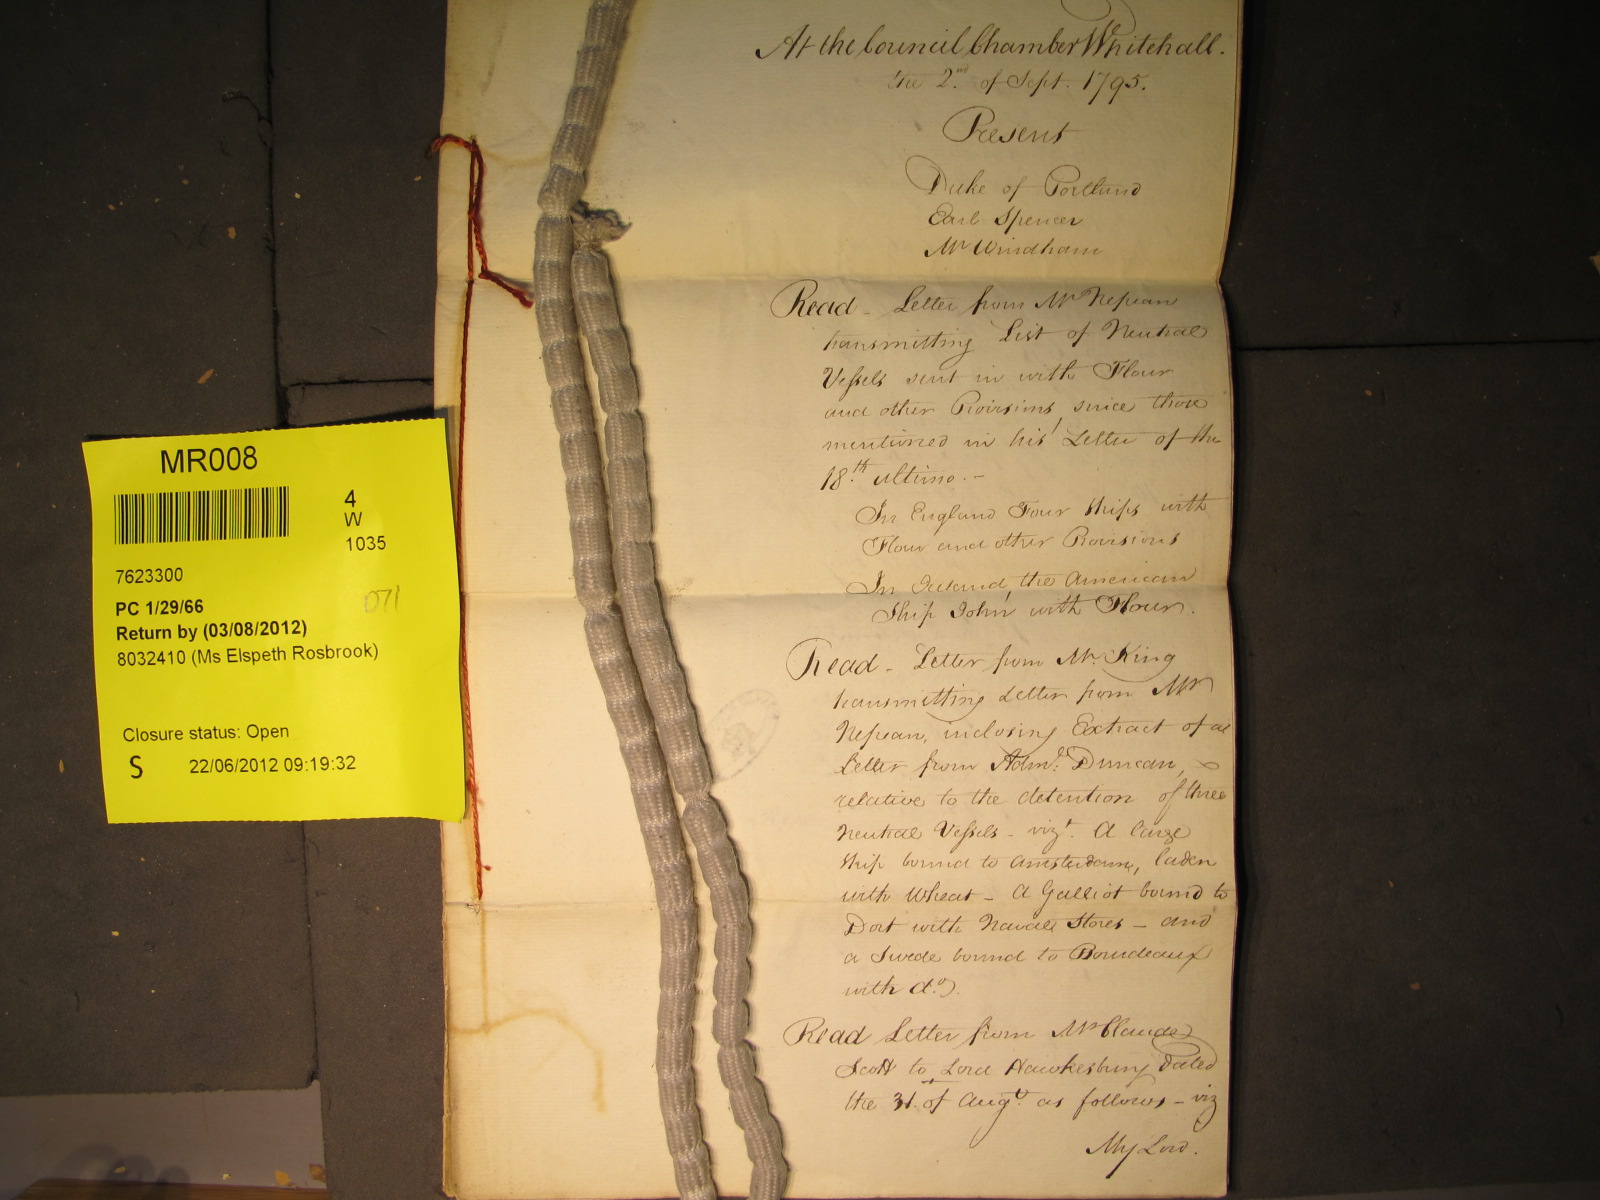 At the Council Chamber Whitehall.
the 2nd of Sept. 1795.
Present
Duke of Portland
Earl Spencer
Mr Windham
Read - Letter from Mr Nepean
transmitting List of Neutral
Vessels sent in with Flour
and other Provisions, since those
mentioned in his Letter of the
18th ultimo. -
In England Four Ships with
Flour and other Provisions
In Ireland, the American
Ship John with Flour.
Read - Letter from Mr. King
transmitting Letter from Mr
Nepean, inclosing Extract of a
Letter from Adml. Duncan,
relative to the detention of three
Neutral Vessels - vizt. A large
Ship bound to Amsterdam, laden
with Wheat - A Galliot bound to
Dort with Naval Stores - and
a Swede bound to Bourdeaux
with do.
Read Letter from Mr Claude
Scott to Lord Hawkesbury dated
the 31st of Augt. as follows - viz
My Lord.
MR008
4
W
1035
7623300
071
PC 1/29/66
Return by (03/08/2012)
8032410 (Ms Elspeth Rosbrook)
Closure status: Open
S 22/06/2012 09:19:32